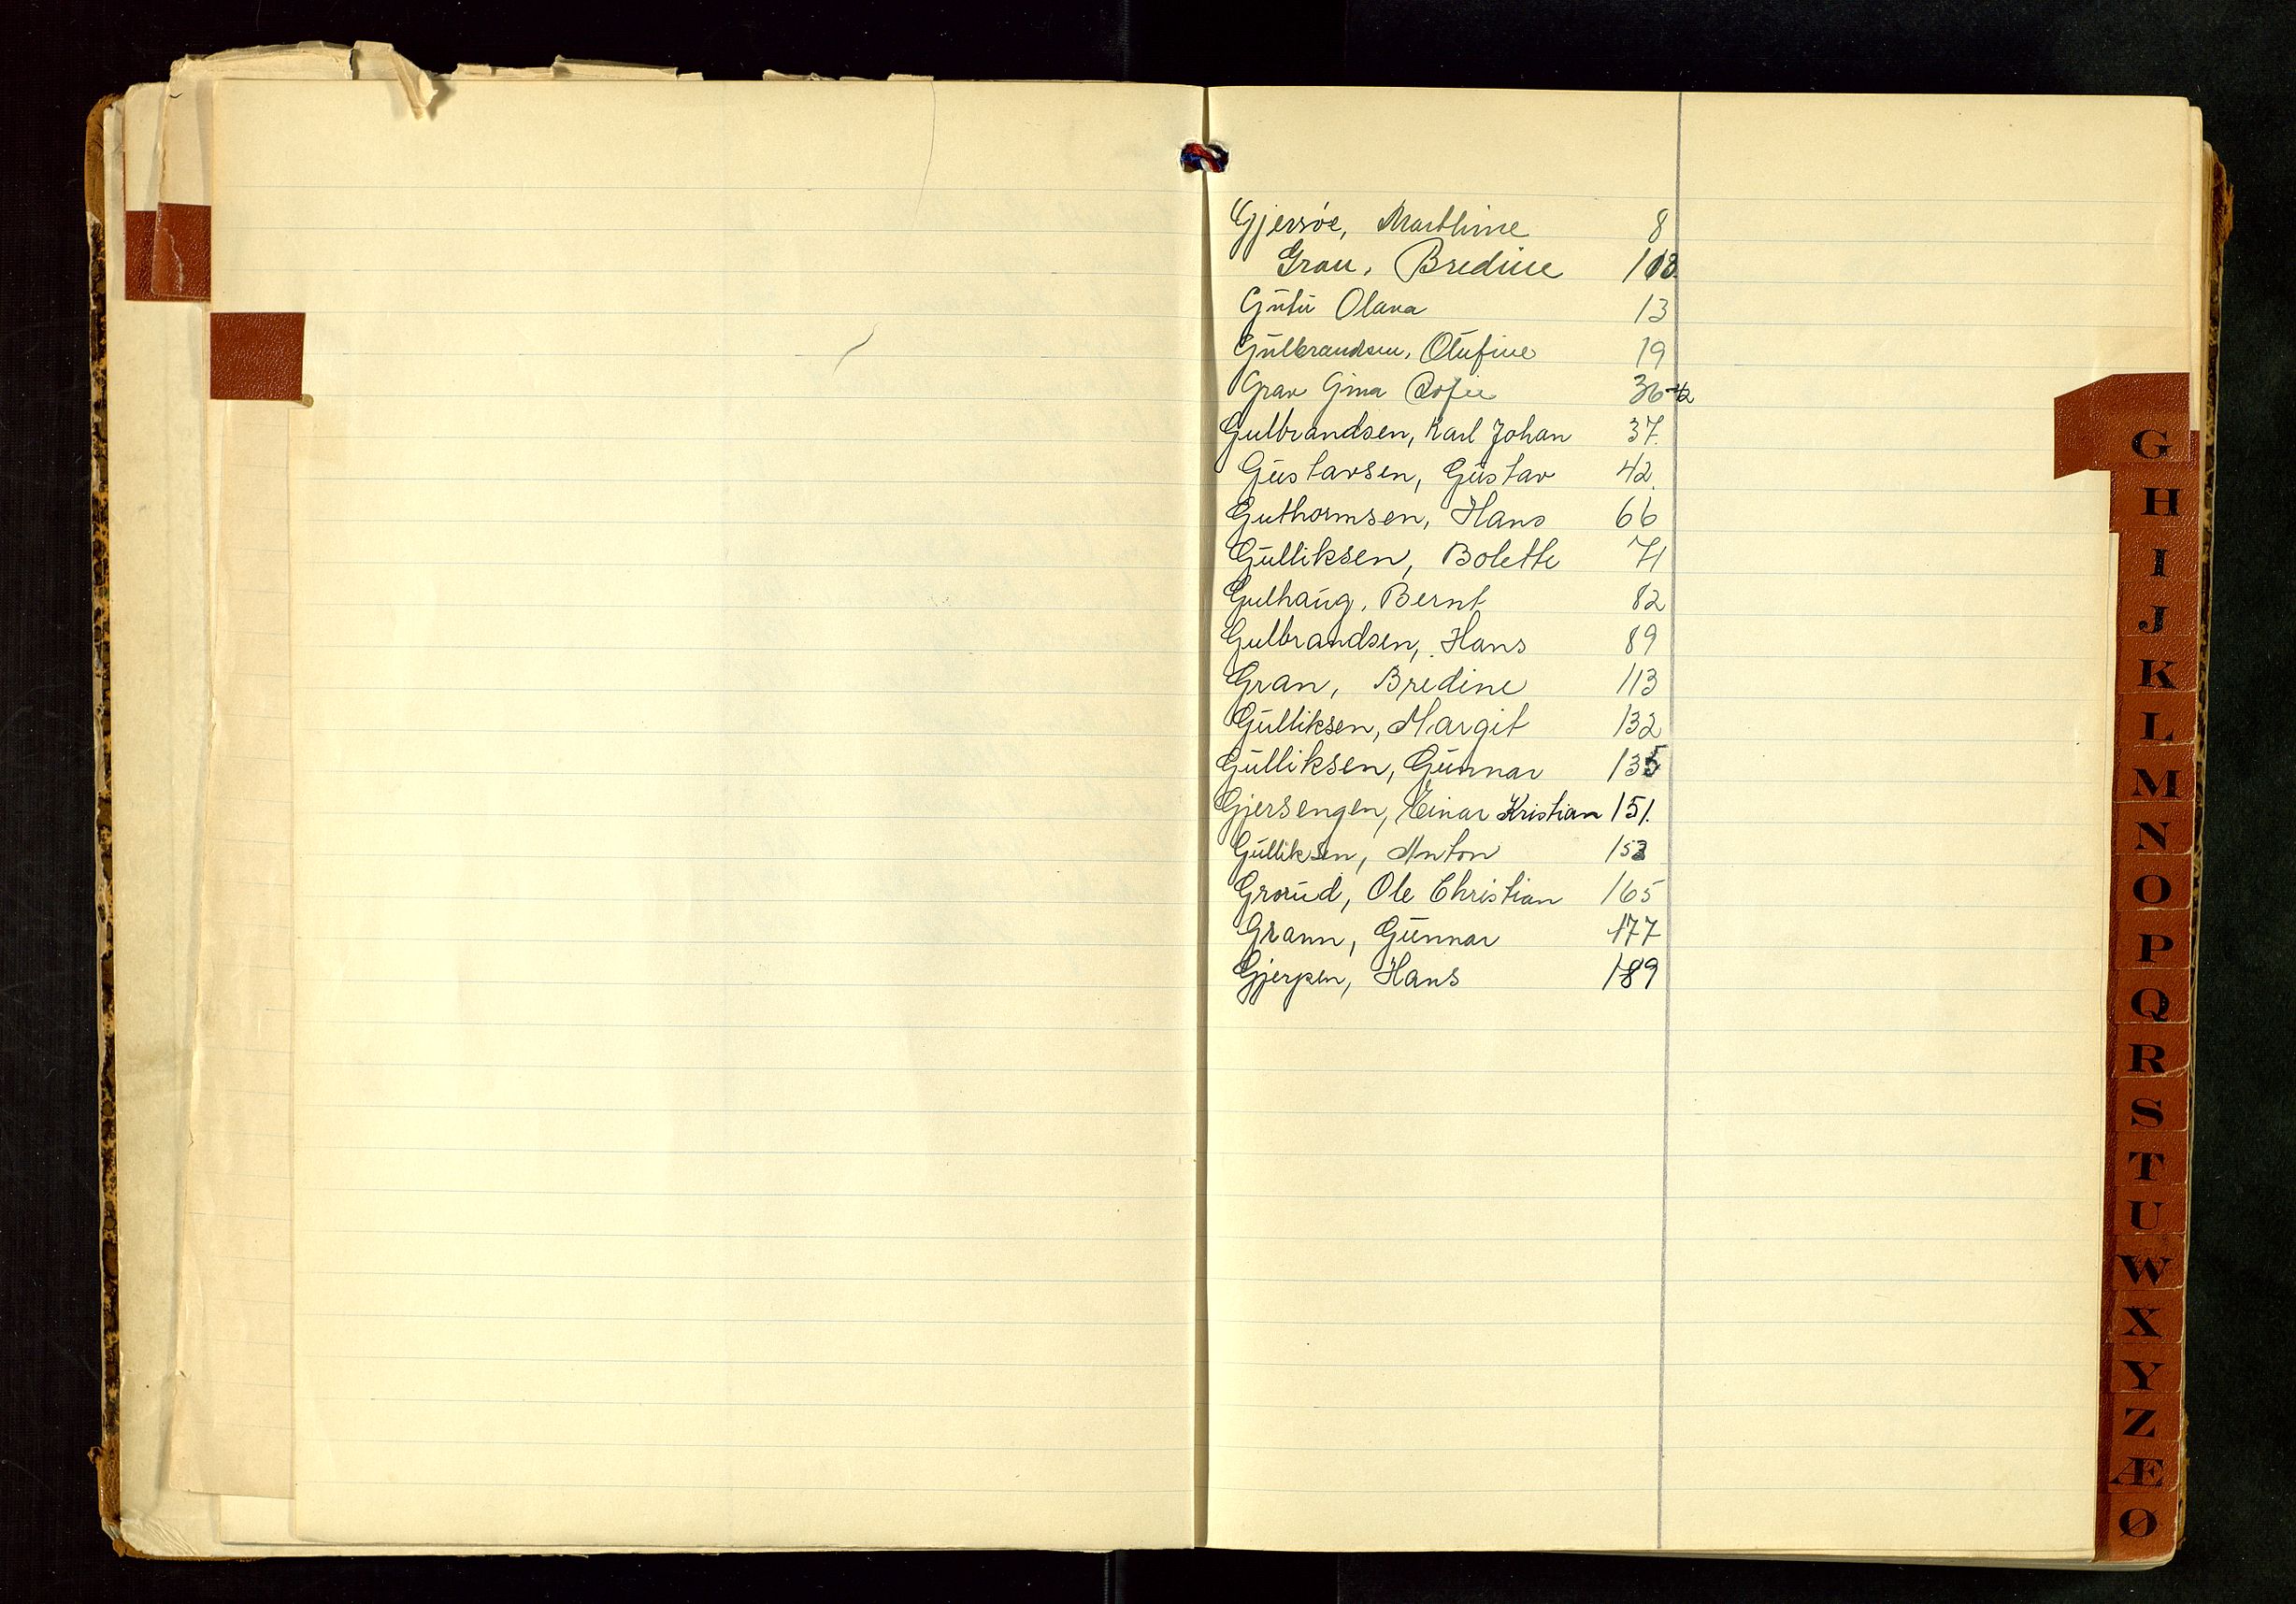 Gjersøe, Marthine 8
Gran, Bredine 108.
Gutu Olava 13
Gulbrandsen, Olufine 19
Grav Gina Sofie 36-42
Gulbrandsen, Karl Johan 37.
Gustavsen, Gustav 42.
Guthormsen, Hans 66
Gulliksen, Bolette 71
Gulhaug, Bernt 82
Gulbrandsen, Hans 89
Gran, Bredine 113
Gulliksen, Margit 132
Gulliksen, Gunnar 135
Gjersengen, Einar Kristian 151.
Gulliksen, Anton 153
Grorud, Ole Christian 165
Grann, Gunnar 177
Gjerpen, Hans 189
G
H
I
J
K
L
M
N
O
P
Q
R
S
T
U
W
X
Y
Z
Æ
Ø